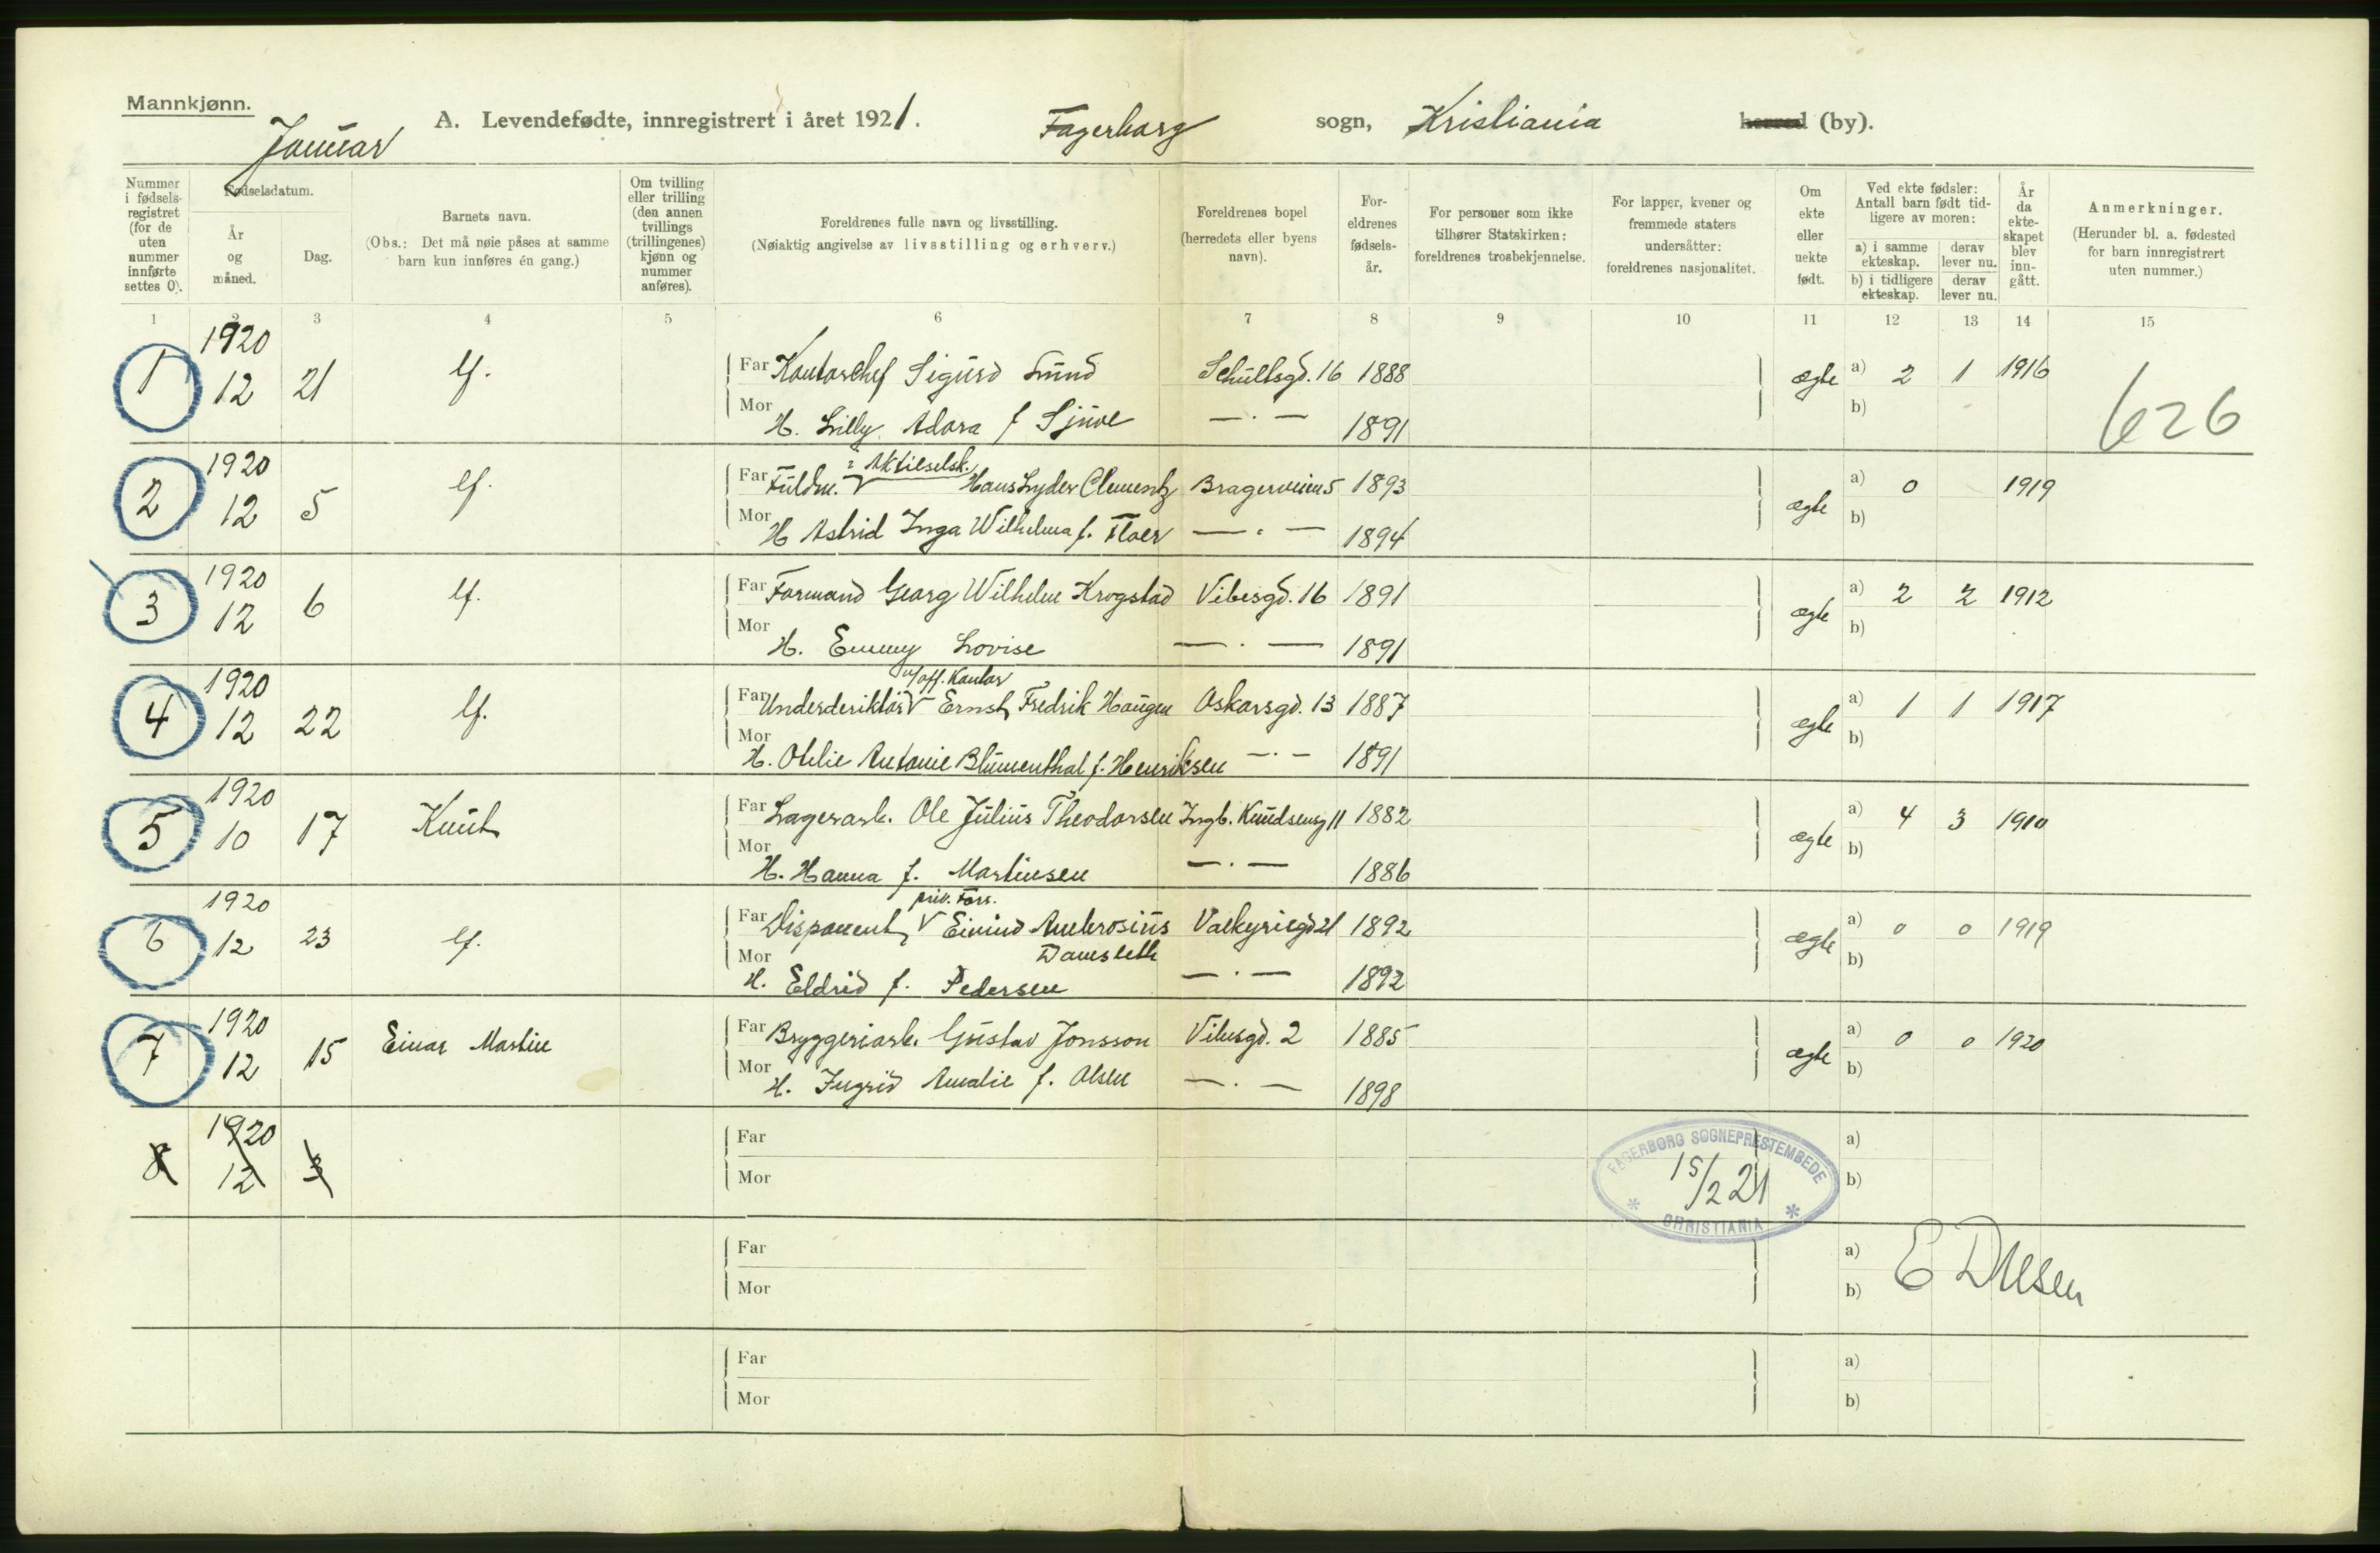 Mannkjønn.
Januar
A. Levendefødte, innregistrert i året 1921. Fagerborg sogn, Kristiania herred (by).
Nummer i fødselsregistret (for de uten nummer innførte settes 0).
Fødselsdatum.
År og måned.
Dag.
Barnets navn.
(Obs.: Det må nøie påses at samme barn kun innføres én gang.)
Om tvilling eller trilling (den annen tvillings (trillingenes) kjønn og nummer anføres).
Foreldrenes fulle navn og livsstilling.
(Nøiaktig angivelse av livsstilling og erhverv.)
Foreldrenes bopel (herredets eller byens navn).
Foreldrenes fødselsår.
For personer som ikke tilhører Statskirken: foreldrenes trosbekjennelse.
For lapper, kvener og fremmede staters undersåtter: foreldrenes nasjonalitet.
Om ekte eller uekte født.
Ved ekte fødsler: Antall barn født tidligere av moren:
a) i samme ekteskap. derav lever nu.
b) i tidligere ekteskap. derav lever nu.
År da ekteskapet blev inngått.
Anmerkninger.
(Herunder bl. a. fødested for barn innregistrert uten nummer.)
1 2 3 4 5 6 7 8 9 10 11 12 13 14 15
1 1920 12 21 lf. Far Kontorchef Sigurd Lund Schultsgd. 16 1888 ægte a) 2 1 1916
Mor H. Lilly Adora f Sjuve — . — 1891 b)
626
i Aktieselsk.
2 1920 12 5 lf. Far Fuldm. V Hans Lyder Clementz Brageveien 5 1893 ægte a) 0 1919
Mor H Astrid Inga Wilhelma f. Floer — . — 1894 b)
3 1920 12 6 lf. Far Formand Georg Wilhelm Krogstad Vibesgd. 16 1891 ægte a) 2 2 1912
Mor H. Emmy Lovise — . — 1891 b)
v/off. Kontor
4 1920 12 22 lf. Far Underdirektør V Ernst Fredrik Haugen Oskarsgd. 13 1887 ægte a) 1 1 1917
Mor H. Othlie Antonie Blumenthal f. Henriksen — . — 1891 b)
5 1920 10 17 Knut Far Lagerarb. Ole Julius Theodorsen Ingb. Knudsensg 11 1882 ægte a) 4 3 1910
Mor H. Hanna f. Martinsen — . — 1886 b)
priv. Forr.
6 1920 12 23 lf. Far Disponent V Eivind Ambrosius Valkyriegd 21 1892 ægte a) 0 0 1919
Damsleth
Mor H. Eldrid f. Pedersen — . — 1892 b)
7 1920 12 15 Einar Martin Far Bryggeriarb. Gustav Jonsson Vibesgd. 2 1885 ægte a) 0 0 1920
Mor H. Ingrid Amalie f. Olsen — . — 1898 b)
8 1920 12 3 Far a)
Mor b)
FAGERBORG SOGNEPRESTEMBEDE
15/2 21
* CHRISTIANIA *
Far a)
Mor b)
Far a)
Mor b)